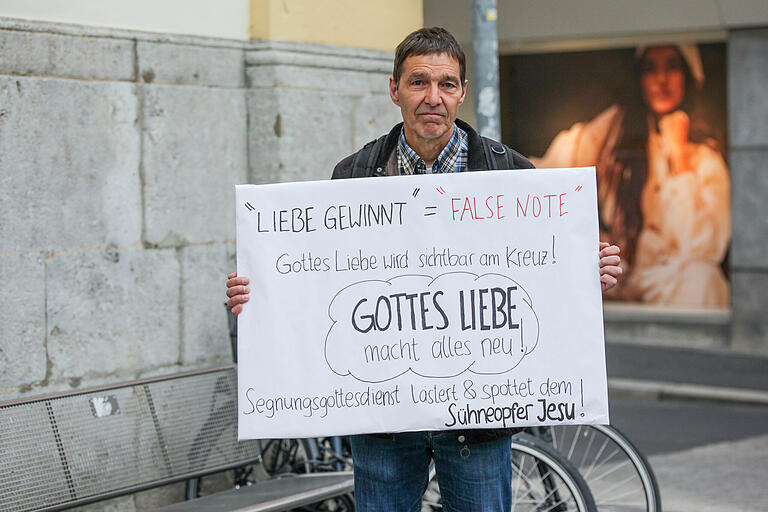 "LIEBE GEWINNT" = "FALSE NOTE"
Gottes Liebe wird sichtbar am Kreuz!
GOTTES LIEBE
macht alles neu!
Segnungsgottesdienst lästert & spottet dem
Sühneopfer Jesu!